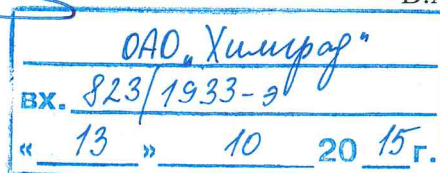 ОАО „Химград"
вх. 823/1933-э
« 13 » 10 20 15 г.